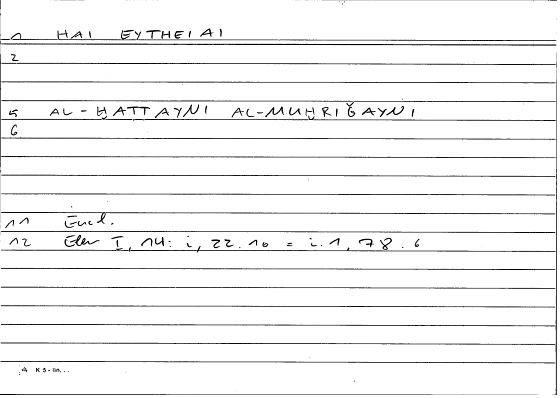 1 HAI EYTHEIAI
2
5 AL-ḪAṬṬAYNI AL-MUḪRIǦAYNI
6
11 Eucl.
12 Elem I, 14: i, 22.10 = i.1, 78.6
K 5 - lin...